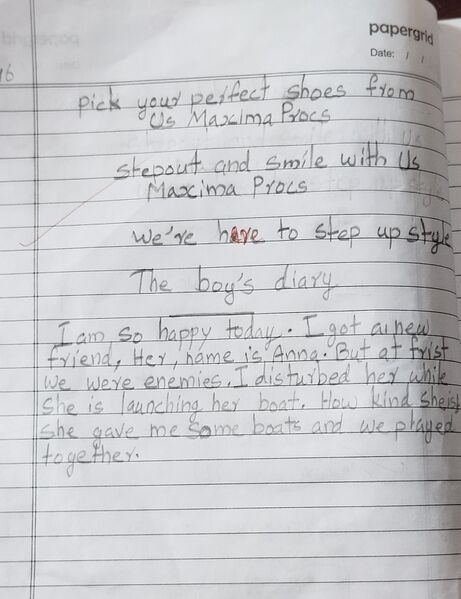 papergrid
Date: / /
16
Pick your perfect shoes from
Us Maxima Procs
Stepout and smile with Us
Maxima Procs
We're here to step up style
The boy's diary
I am so happy today. I got a new
friend, Her, name is Anna. But at frist
we were enemies. I disturbed her while
She is launching her boat. How kind she is!
She gave me some boats and we played
together.